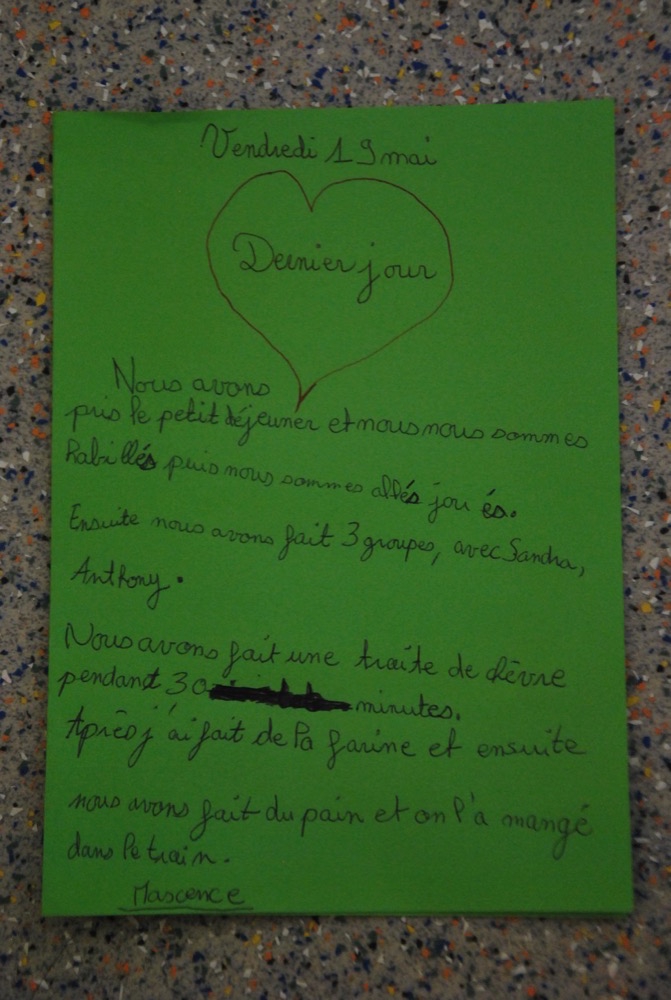 Vendredi 19 mai
Dernier jour
Nous avons
pris le petit déjeuner et nous nous sommes
habillés puis nous sommes allés joués.
Ensuite nous avons fait 3 groupes, avec Sandra,
Anthony.
Nous avons fait une traite de chèvre
pendant 30 minutes.
Après j'ai fait de la farine et ensuite
nous avons fait du pain et on l'a mangé
dans le train.
Mascence